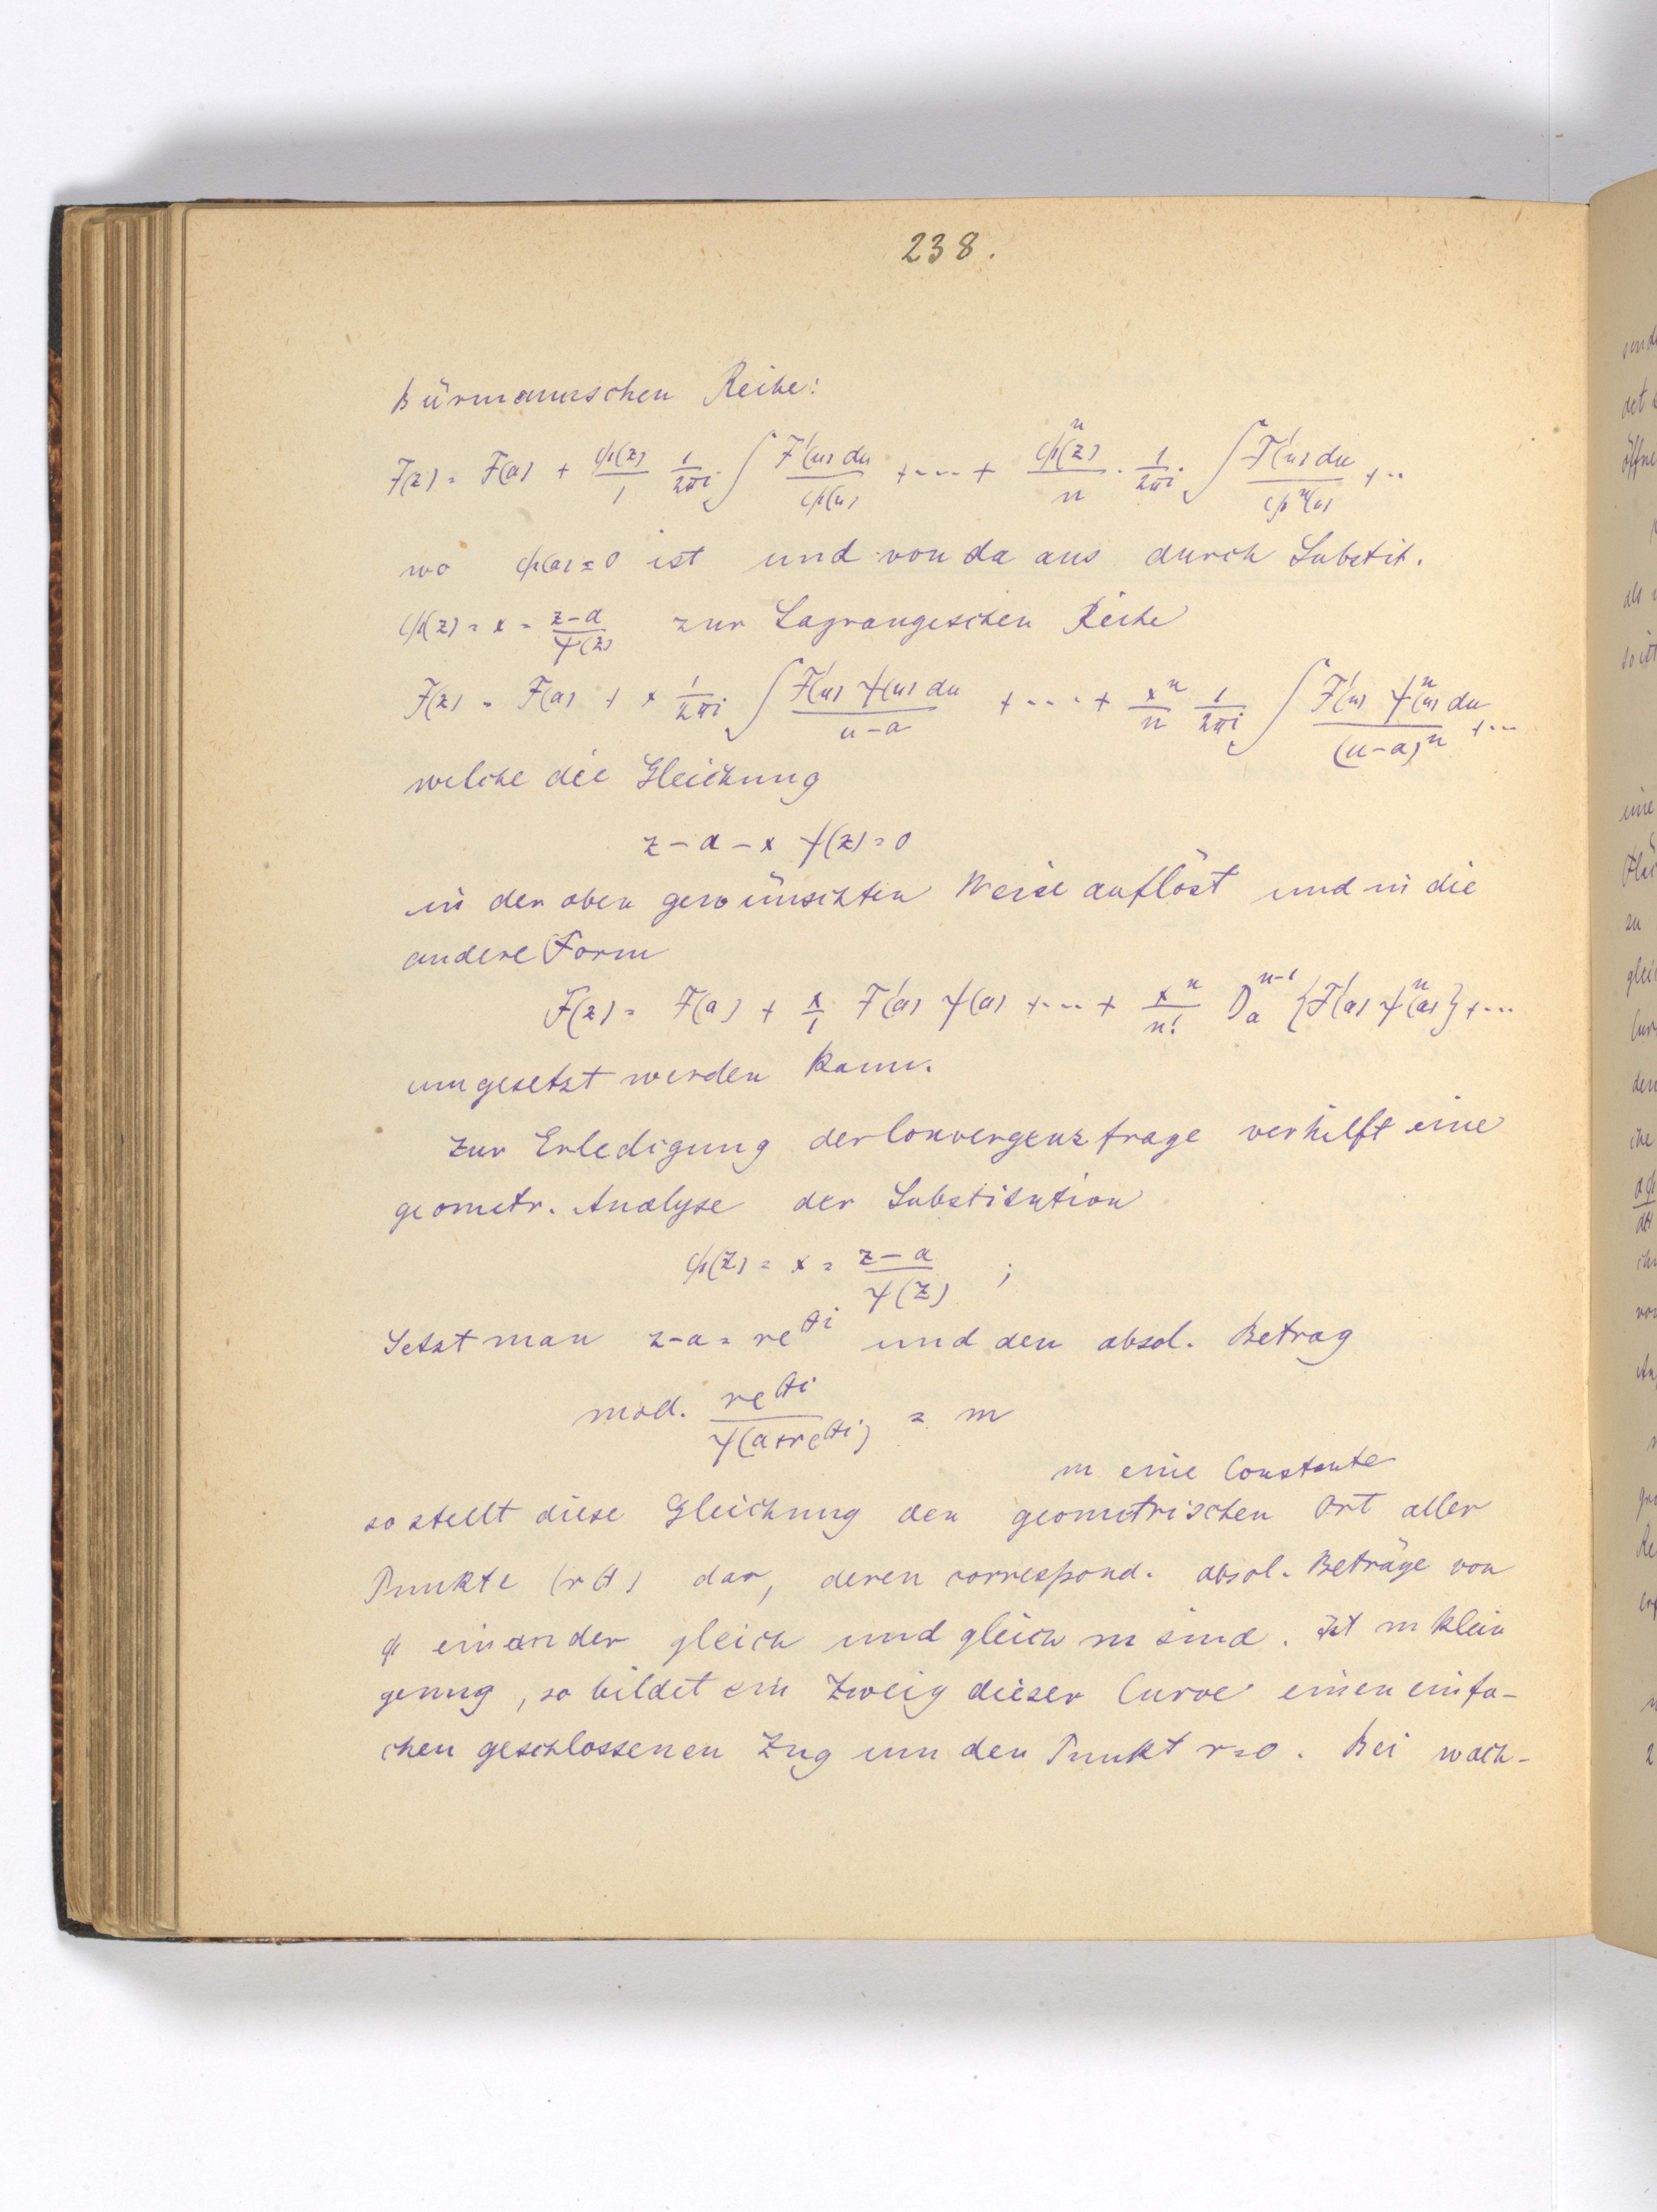 238.
Bürmannschen Reihe:
F(z) = F(a) + φ(z)/1 1/2πi ∫ F'(u) du / φ(u) + ---- + φⁿ(z)/n · 1/2πi ∫ F'(u) du / φⁿ(u) + ..
wo φ(a) = 0 ist und von da aus durch Substit.
φ(z) = x = z-a / ψ(z) zur Lagrangeschen Reihe
F(z) = F(a) + x 1/2πi ∫ F'(u) ψ(u) du / u-a + ---- + xⁿ/n 1/2πi ∫ F'(u) ψⁿ(u) du / (u-a)ⁿ + ---
welche die Gleichung
z - a - x ψ(z) = 0
in der oben gewünschten Weise auflöst und in die
andere Form
F(z) = F(a) + x/1 F'(a) ψ(a) + --- + xⁿ/n! Dₐⁿ⁻¹ {F'(a) ψⁿ(a)} + ---
umgesetzt werden kann.
Zur Erledigung der Convergenzfrage verhilft eine
geometr. Analyse der Substitution
φ(z) = x = z-a / ψ(z) ;
Setzt man z-a = re^θi und den absol. Betrag
mod. re^θi / ψ(a+re^θi) = m
m eine Constante
so stellt diese Gleichung den geometrischen Ort aller
Punkte (rθ) dar, deren correspond. absol. Beträge von
φ einander gleich und gleich m sind. Ist m klein
genug, so bildet ein Zweig dieser Curve einen einfa-
chen geschlossenen Zug um den Punkt r=0. Bei wach-